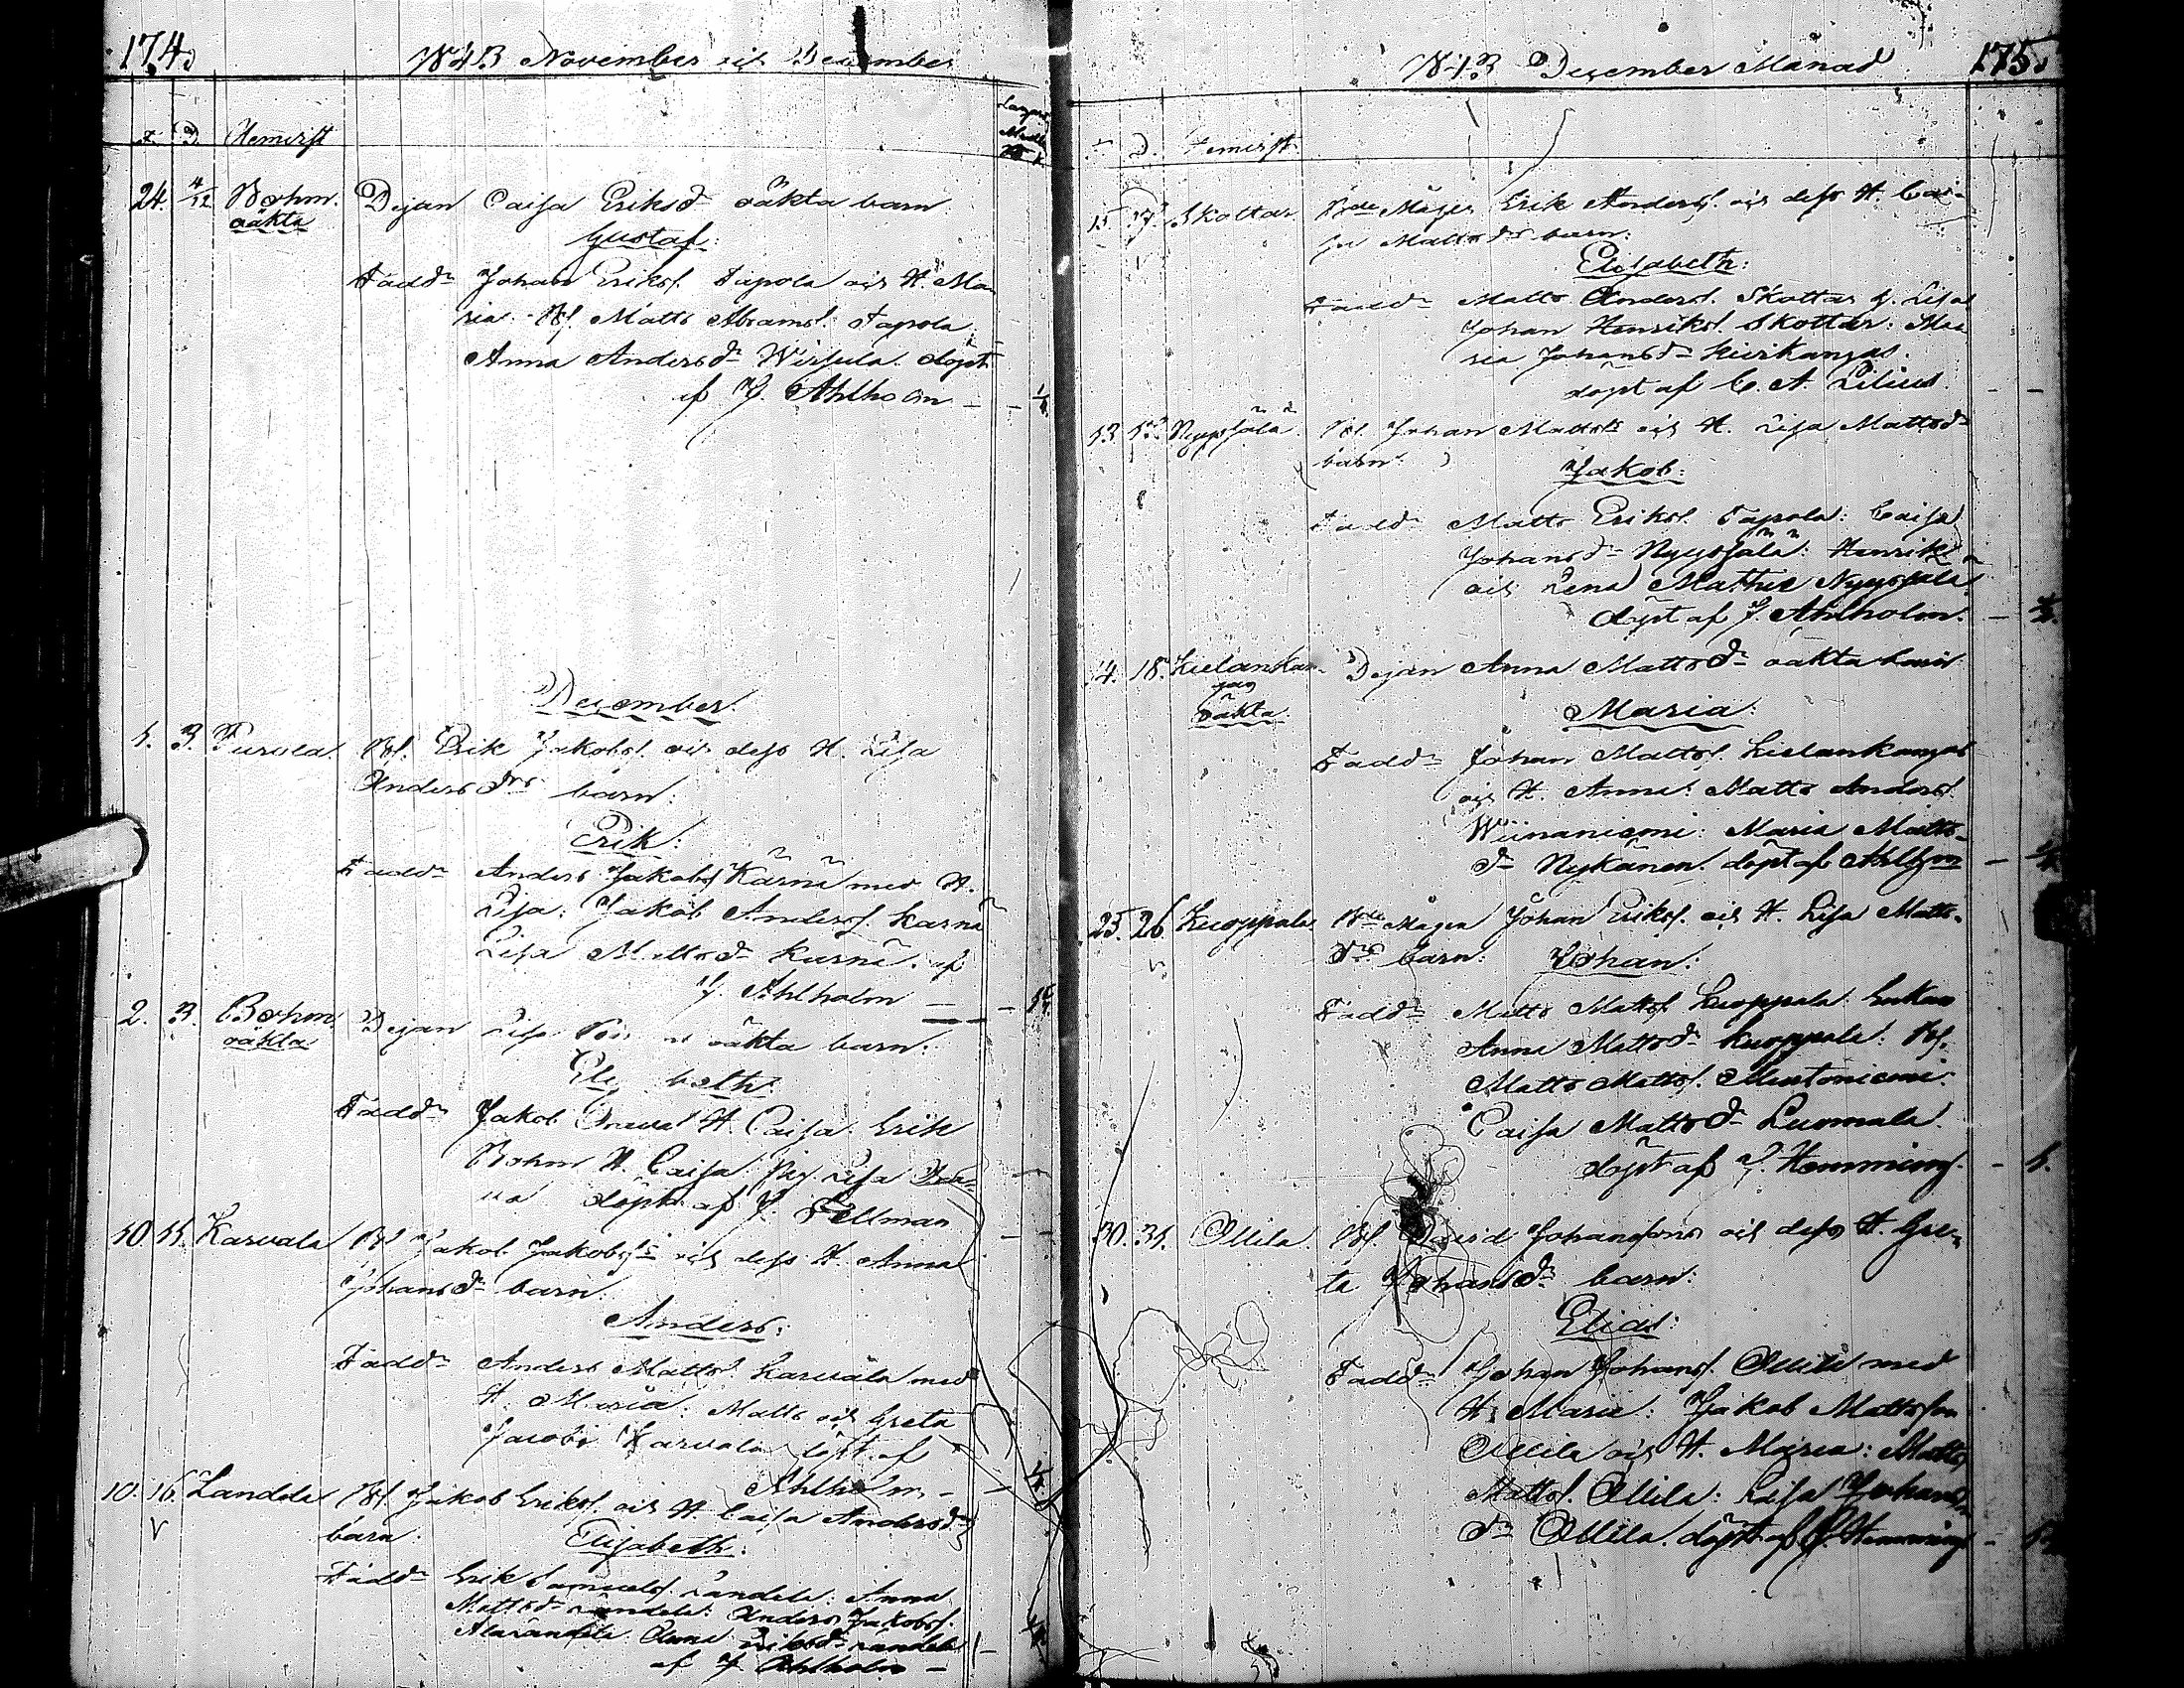 174.
1843 November och December
F. D. Hemvist
24. 4/12 Bohm. Dejan Caisa Eriksdr oäkta barn
oäkta
Gustaf:
Faddr Johan Erikss. Tapola och H. Ma-
ria. Matts Abramss. Tapola.
Anna Andersdr Wirsula. döpt
af J. Ahlholm
December.
1. 3. Turola. Erik Jakobss. och dess H. Lisa
Andersdrs barn:
Erik:
Faddr Anders Jakobss Kärnä med H.
Lisa: Jakob Anderss. Kärnä
Lisa Mattsdr Kärnä. af
J. Ahlholm
2. 3. Bohm Dejan Lisa oäkta barn:
oäkta
Faddr Jakob H. Caisa. Erik
Bohm H. Caisa. Lisa
döpt af J. Fellman
10. 11. Karvala Jakob Jakobss och dess H. Anna
Johansdr barn.
Anders:
Faddr Anders Mattss. Karvala med
H. Maria: Matts och Greta
Jacobi Karvala döpt af
Ahlholm
10. 16. Landela Jakob Erikss. och H. Caisa Andersdr
barn. Elisabeth:
Faddr Erik Samuelss. Landela: Anna
Mattsdr Landela: Anders Jakobss.
Anna Eriksdr Landela
af J. Ahlholm
1843 December Månad
175.
D. Hemvist.
15. 17. Skottar Mågen Erik Anderss. och dess H. Cai-
sa Mattsdrs barn:
Elisabeth:
Faddr Matts Anderss. Skottar H. Lisa
Johan Henrikss. Skottar: Ma-
ria Johansdr Kivikangas.
döpt af C. A. Lilius
13. Nyyssälä. Johan Mattss och H. Lisa Mattsdr
barn:
Jakob:
Faddr Matts Erikss. Tapola: Caisa
Johansdr Nyyssälä: Henrik
och Lena Nyyssälä
döpt af J. Ahlholm.
14. 18. Kielankan- Dejan Anna Mattsdr oäkta barn
gas
oäkta:
Maria:
Faddr Johan Mattss. Kielankangas
och H. Anna: Matts Anderss.
Wiinaniemi: Maria Matts-
dr Nykänen. döpt af Ahlholm
25. 26. Kuoppala Mågen Johan Erikss. och H. Lisa Matts-
drs barn: Johan:
Faddr Matts Mattss Kuoppala: Enkan
Anna Mattsdr Kuoppala:
Matts Mattss.
Caisa Mattsdr Luomala.
döpt af J. Hemming.
30. 31. Ollila. David Johanssons och dess H. Gre-
ta Johansdr barn:
Elias:
Faddr Johan Johanss. Ollila med
H. Maria: Jakob Mattsson
Ollila och H. Maria: Matts
Mattss. Ollila: Lisa Johans-
dr Ollila. döpt af J. Hemming